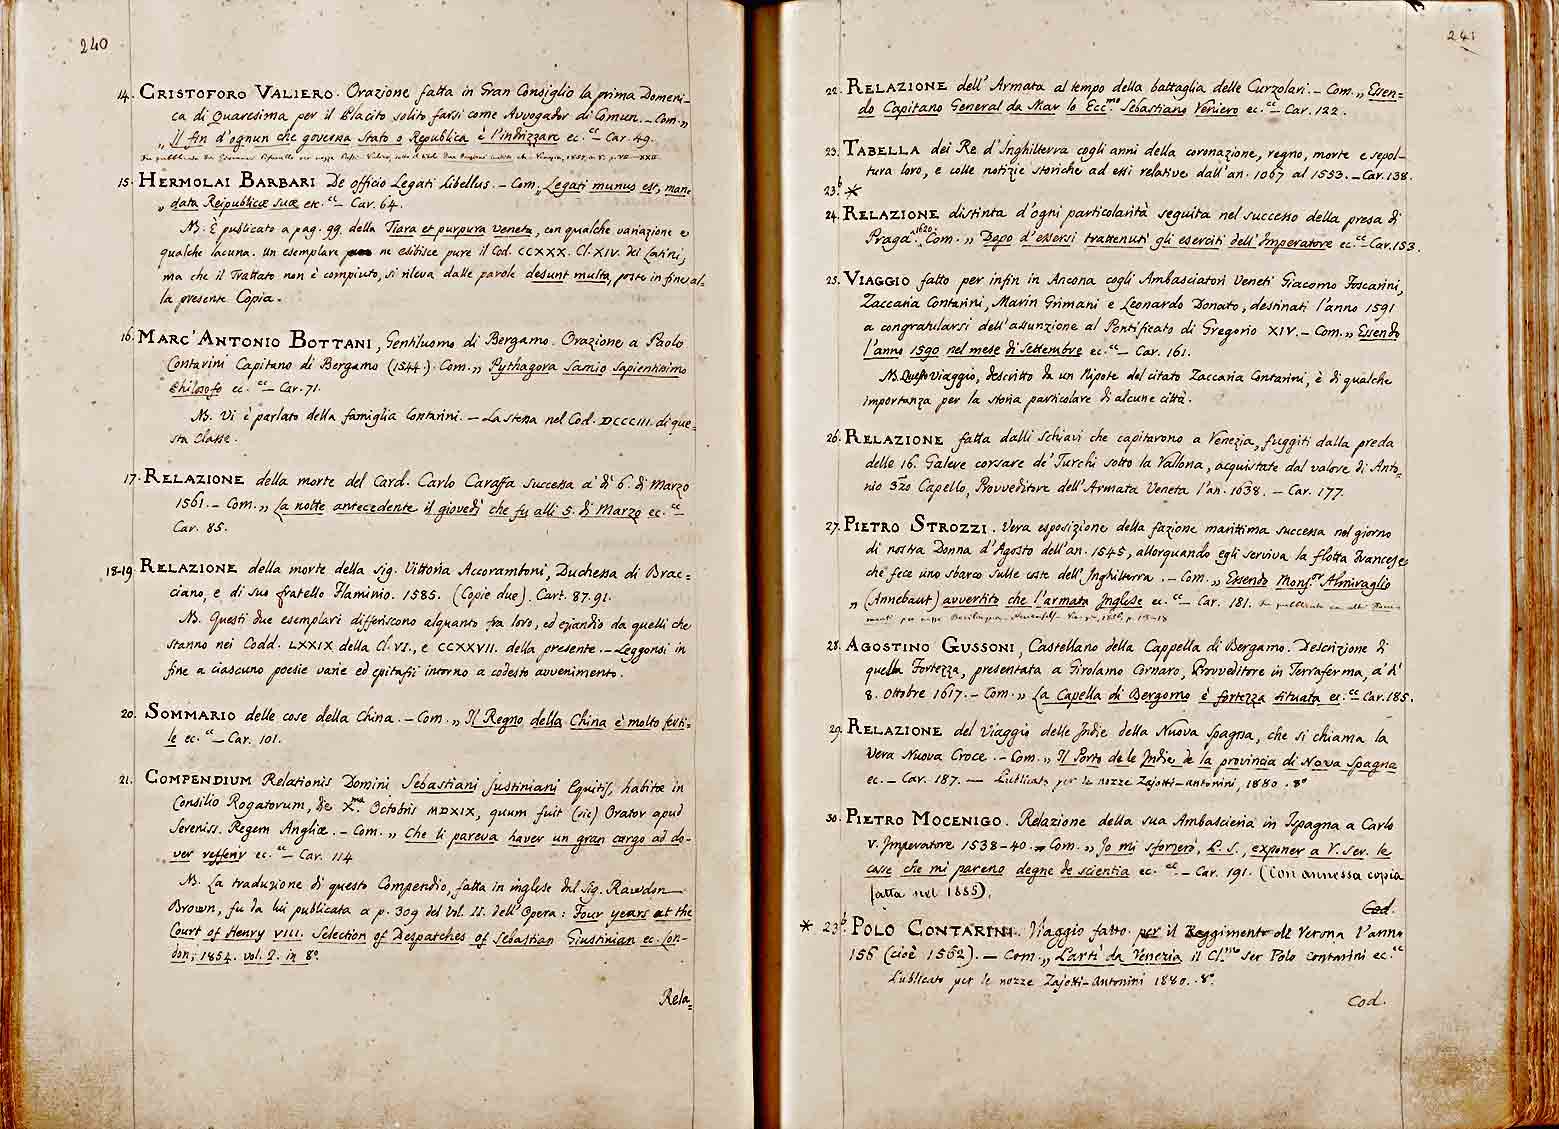 240
14. CRISTOFORO VALIERO. Orazione fatta in Gran Consiglio la prima Domeni-
ca di Quaresima per il Placito solito farsi come Avvogador di Comun. – Com. „
„ Il fin d'ognun che governa Stato o Republica è l'indrizzare ec. ec – Car. 49.
15. HERMOLAI BARBARI De officio Legati Libellus. – Com. „ Legati munus est, man-
„ data Reipublicæ suæ etc. ec – Car. 64.
NB. È publicato a pag. 99. della Tiara et purpura veneta, con qualche variazione e
qualche lacuna. Un esemplare ne esibisce pure il Cod. CCXXX. Cl. XIV. dei Latini;
ma che il Trattato non è compiuto, si rileva dalle parole desunt multa, poste in fine al-
la presente Copia.
16. MARC'ANTONIO BOTTANI, Gentiluomo di Bergamo. Orazione a Paolo
Contarini Capitano di Bergamo (1544.) Com. „ Pythagora Samio Sapientissimo
Philosofo ec. ec – Car. 71.
NB. Vi è parlato della famiglia Contarini. – La stessa nel Cod. DCCCIII. di que-
sta Classe.
17. RELAZIONE della morte del Card. Carlo Caraffa successa a' dì 6. di Marzo
1561. – Com. „ La notte antecedente il giovedì che fu alli 5. di Marzo ec. ec –
Car. 85.
18-19. RELAZIONE della morte della Sig. Vittoria Accoramboni, Duchessa di Brac-
ciano, e di suo fratello Flaminio. 1585. (Copie due). Cart. 87. 91.
NB. Questi due esemplari differiscono alquanto fra loro, ed eziandio da quelli che
stanno nei Codd. LXXIX della Cl. VI., e CCXXVII. della presente. – Leggonsi in
fine a ciascuno poesie varie ed epitafii intorno a codesto avvenimento.
20. SOMMARIO delle cose della China. – Com. „ Il Regno della China è molto ferti-
le ec. ec – Car. 101.
21. COMPENDIUM Relationis Domini Sebastiani Justiniani Equitis, habitæ in
Consilio Rogatorum, die Xma. Octobris MDXIX, quum fuit (sic) Orator apud
Sereniss. Regem Angliæ. – Com. „ Che li pareva haver un gran cargo ad do-
ver refferir ec. ec – Car. 114
NB. La traduzione di questo Compendio, fatta in inglese dal Sig. Rawdon
Brown, fu da lui publicata a p. 309 del Vol. II. dell'Opera: Four years at the
Court of Henry VIII. Selection of Despatches of Sebastian Giustinian ec. Lon-
don; 1854. vol. 2. in 8°.
Rela-
241
22. RELAZIONE dell'Armata al tempo della battaglia delle Curzolari. – Com. „ Essen-
do Capitano General da Mar lo Eccmo. Sebastiano Veniero ec. ec – Car. 122.
23. TABELLA dei Re d'Inghilterra cogli anni della coronazione, regno, morte e sepol-
tura loro, e colle notizie storiche ad essi relative dall'an. 1067 al 1553. – Car. 138.
23b *
24. RELAZIONE distinta d'ogni particolarità seguita nel successo della presa di
Praga 1620. Com. „ Dopo d'essersi trattenuti gli eserciti dell'Imperatore ec. ec Car. 153.
25. VIAGGIO fatto per infin in Ancona cogli Ambasciatori Veneti Giacomo Foscarini,
Zaccaria Contarini, Marin Grimani e Leonardo Donato, destinati l'anno 1591
a congratularsi dell'assunzione al Pontificato di Gregorio XIV. – Com. „ Essendo
l'anno 1590 nel mese di Settembre ec. ec – Car. 161.
NB. Questo viaggio, descritto da un Nipote del citato Zaccaria Contarini, è di qualche
importanza per la storia particolare di alcune città.
26. RELAZIONE fatta dalli Schiavi che capitarono a Venezia, fuggiti dalla preda
delle 16. Galere corsare de' Turchi sotto la Vallona, acquistate dal valore di Anto-
nio 3zo Capello, Provveditore dell'Armata Veneta l'an. 1638. – Car. 177.
27. PIETRO STROZZI. Vera esposizione della fazione marittima successa nel giorno
di nostra Donna d'Agosto dell'an. 1545, allorquando egli serviva la flotta Francese
che fece uno sbarco sulle coste dell'Inghilterra. – Com. „ Essendo Monsr. Almiraglio
„ (Annebaut) avvertito che l'armata Inglese ec. ec – Car. 181.
28. AGOSTINO GUSSONI, Castellano della Cappella di Bergamo. Descrizione di
quella Fortezza, presentata a Girolamo Cornaro, Provveditore in Terraferma, a' dì
8. Ottobre 1617. – Com. „ La Capella di Bergomo è fortezza situata ec. ec Car. 185.
29. RELAZIONE del Viaggio delle Indie della Nuova Spagna, che si chiama la
Vera Nuova Croce. – Com. „ Il Porto de le Indie de la provincia di Nova Spagna
ec. – Car. 187. — Pubblicato per le nozze Zajotti-Antonini, 1880. 8°
30. PIETRO MOCENIGO. Relazione della sua Ambascieria in Ispagna a Carlo
V. Imperatore 1538-40. – Com. „ Io mi sforzerò, P. S., exponer a V. Ser. le
cosse che mi pareno degne de scientia ec. ec – Car. 191. (Con annessa copia
fatta nel 1885).
Cod.
* 23b. POLO CONTARINI. Viaggio fatto per il Reggimento di Verona l'anno
156 (cioè 1562). – Com. „ Partì da Venezia il Cl.mo Ser Polo Contarini ec. ec
Pubblicato per le nozze Zajotti-Antonini 1880. 8°.
Cod.